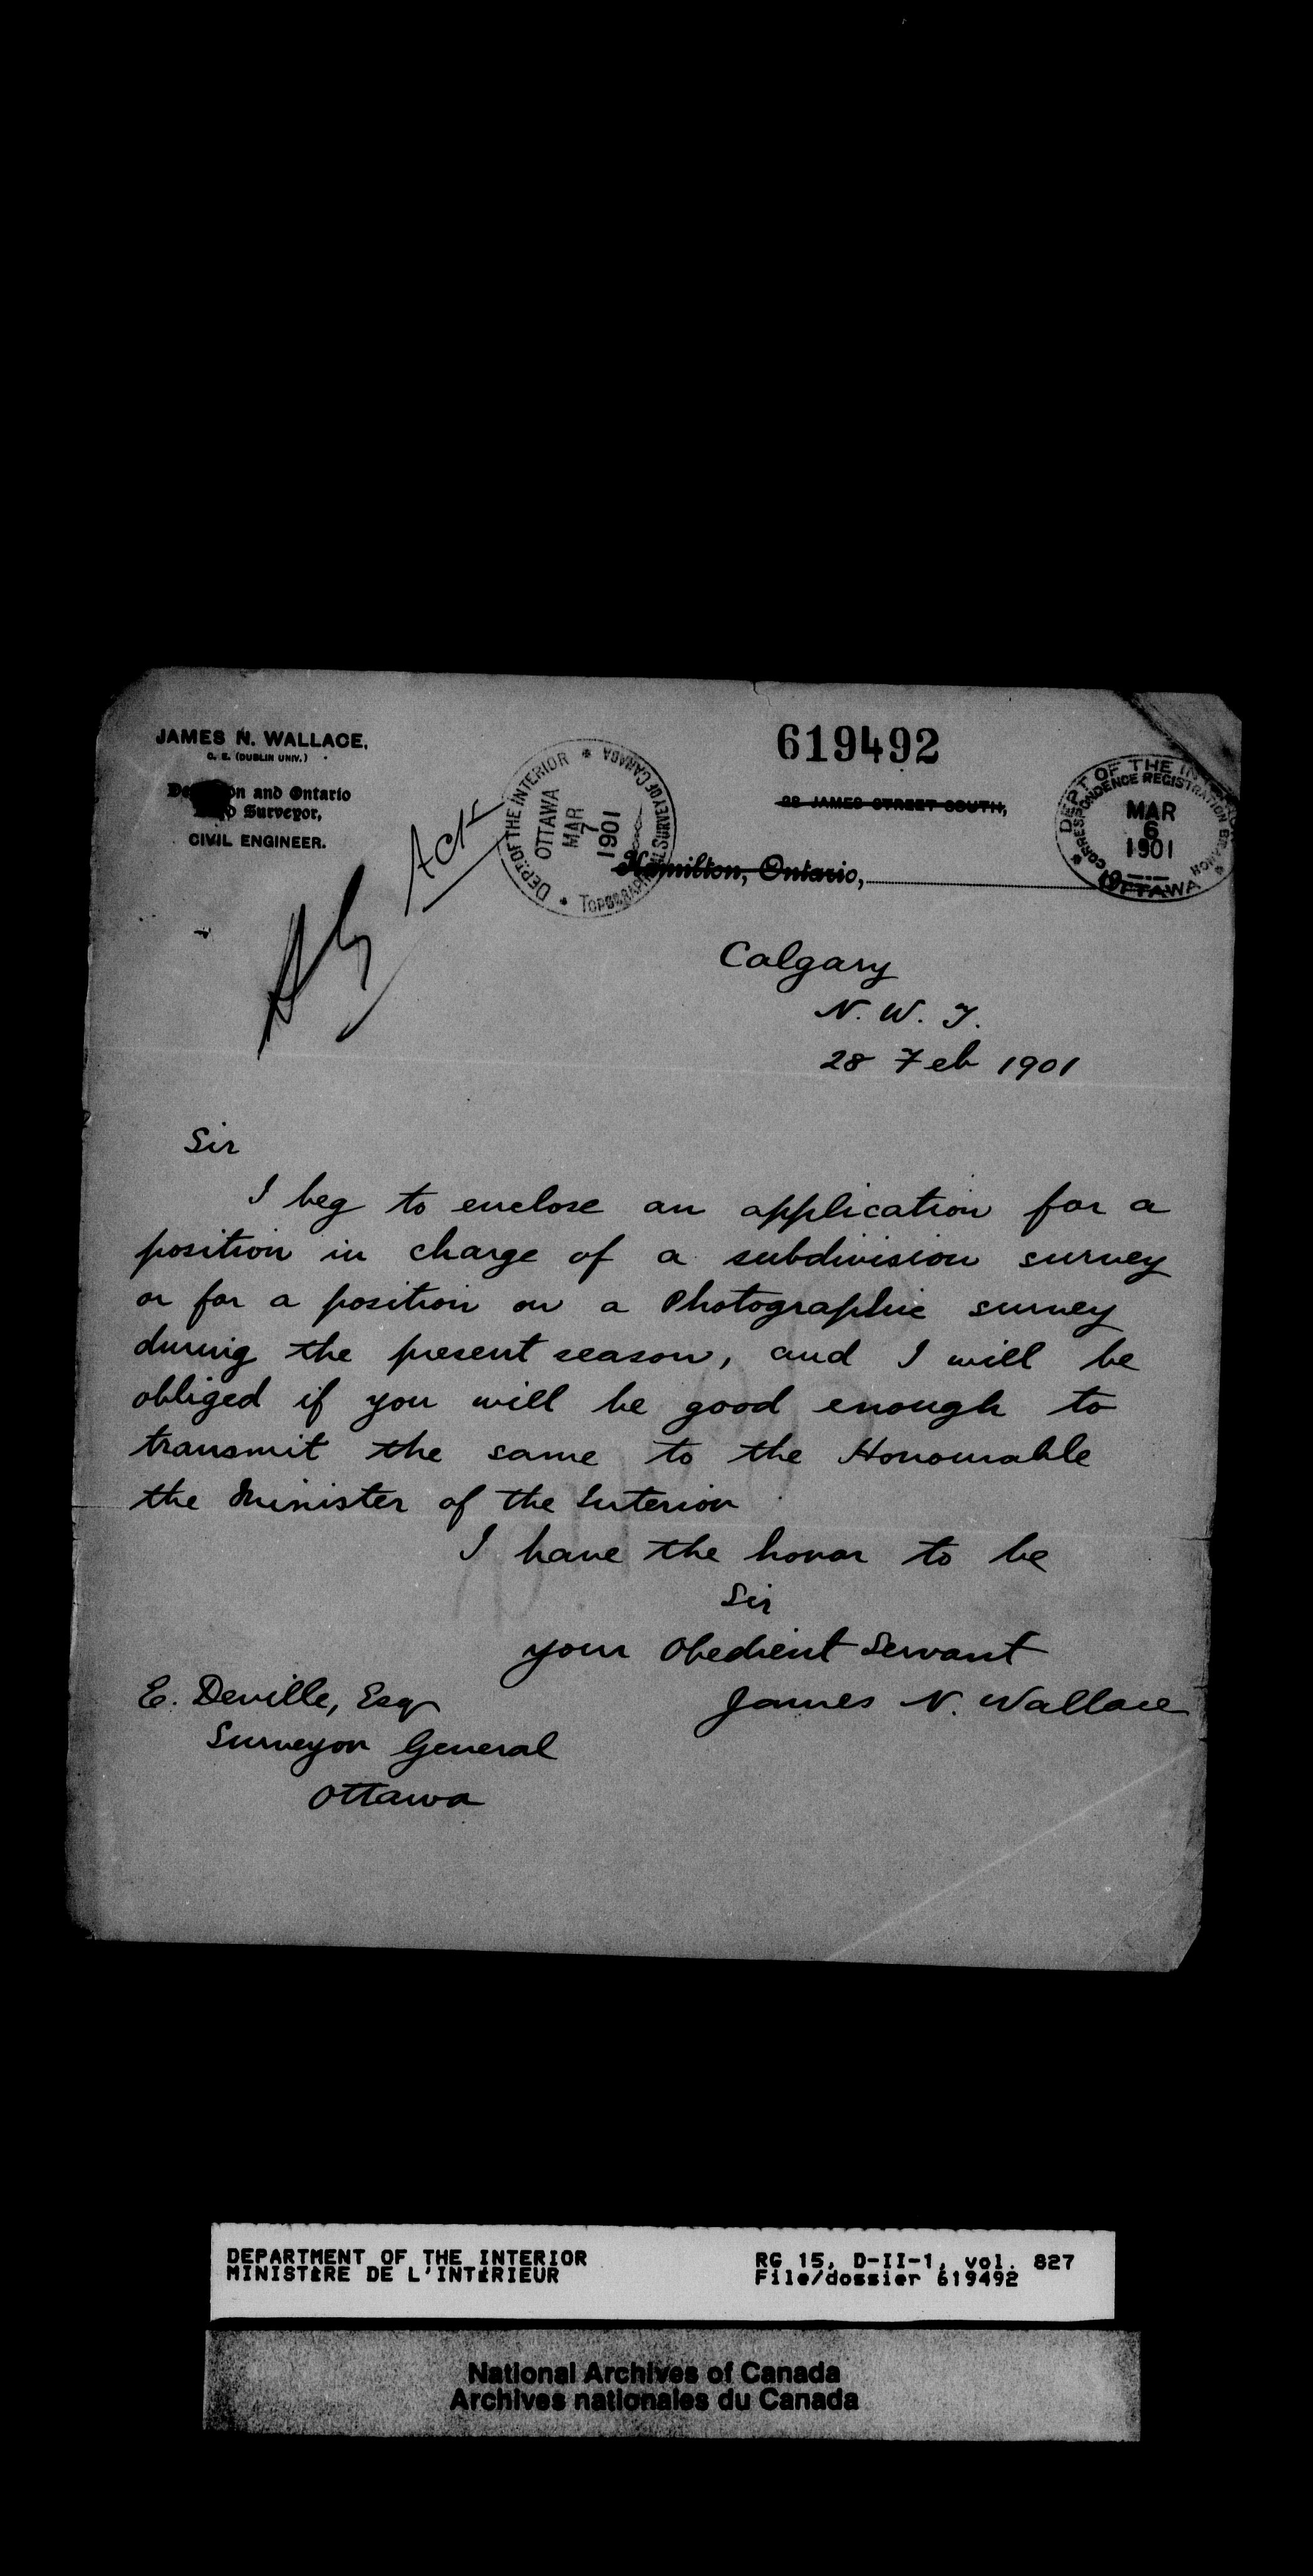 JAMES N. WALLACE,
C. E. (DUBLIN UNIV.)
and Ontario
Surveyor,
CIVIL ENGINEER.
Ack
DEPT. OF THE INTERIOR * TOPOGRAPHICAL SURVEY OF CANADA *
OTTAWA
MAR
7
1901
619492
JAMES STREET SOUTH,
Hamilton, Ontario,
DEPT OF THE
CORRESPONDENCE REGISTRATION BRANCH
MAR
6
1901
OTTAWA
Calgary
N. W. T.
28 Feb 1901
Sir
I beg to enclose an application for a
position in charge of a subdivision survey
or for a position on a Photographic survey
during the present season, and I will be
obliged if you will be good enough to
transmit the same to the Honourable
the Minister of the Interior
I have the honor to be
Sir
your Obedient Servant
James N. Wallace
E. Deville, Esq
Surveyor General
Ottawa
DEPARTMENT OF THE INTERIOR
MINISTÈRE DE L'INTÉRIEUR
RG 15, D-II-1, vol. 827
File/dossier 619492
National Archives of Canada
Archives nationales du Canada